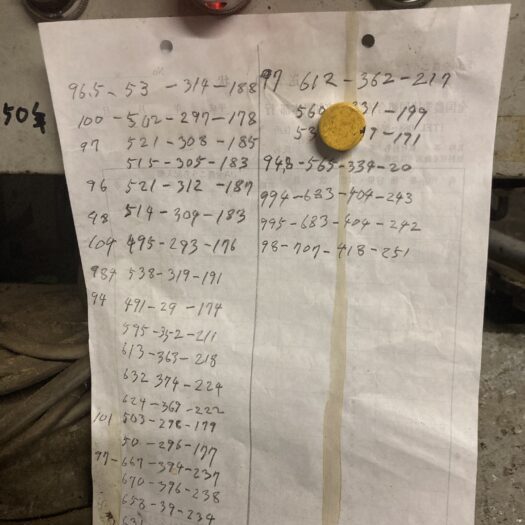 50
96.5-53-314-188
100-502-297-178
97 521-308-185
515-305-183
96 521-312-187
98 514-304-183
104 495-293-176
984 538-319-191
94 491-29-174
595-352-211
613-363-218
632 374-224
624-369-222
101 503-298-179
50-296-177
97-667-394-237
670-396-238
658-39-234
97-612-362-217
560 331-199
171
948-565-334-20
994-683-404-243
995-683-404-242
98-707-418-251